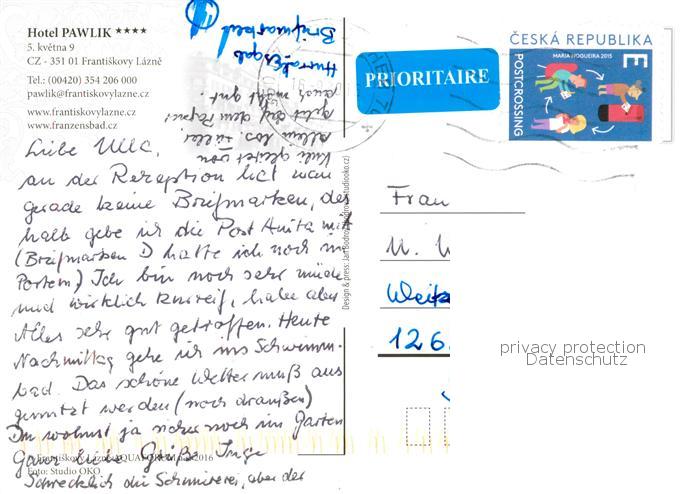 Hotel PAWLIK ****
5. května 9
CZ - 351 01 Františkovy Lázně
Tel.: (00420) 354 206 000
pawlik@frantiskovylazne.cz
www.frantiskovylazne.cz
www.franzensbad.cz
Liebe Ulla,
an der Rezeption hat man
gerade keine Briefmarken, des
halb gebe ich die Post Anita mit
(Briefmarken D hatte ich noch im
Portem) Ich bin noch sehr müde
und wirklich kurreif, habe aber
Alles sehr gut getroffen. Heute
Nachmittag gehe ich ins Schwimm-
bad. Das schöne Wetter muß aus
genutzt werden (noch draußen)
Du wohnst ja sicher noch im Garten
Ganz liebe Grüße Inge
Schrecklich die Schmiererei, aber der
Kuli gleitet von
allein los.
auch nicht gut.
Briefmarken
Františkovy Lázně AQUAFORUM 2016
Foto: Studio OKO
PRIORITAIRE
ČESKÁ REPUBLIKA
MARIA NOGUEIRA 2015
E
POSTCROSSING
Frau
U. W
126
privacy protection
Datenschutz